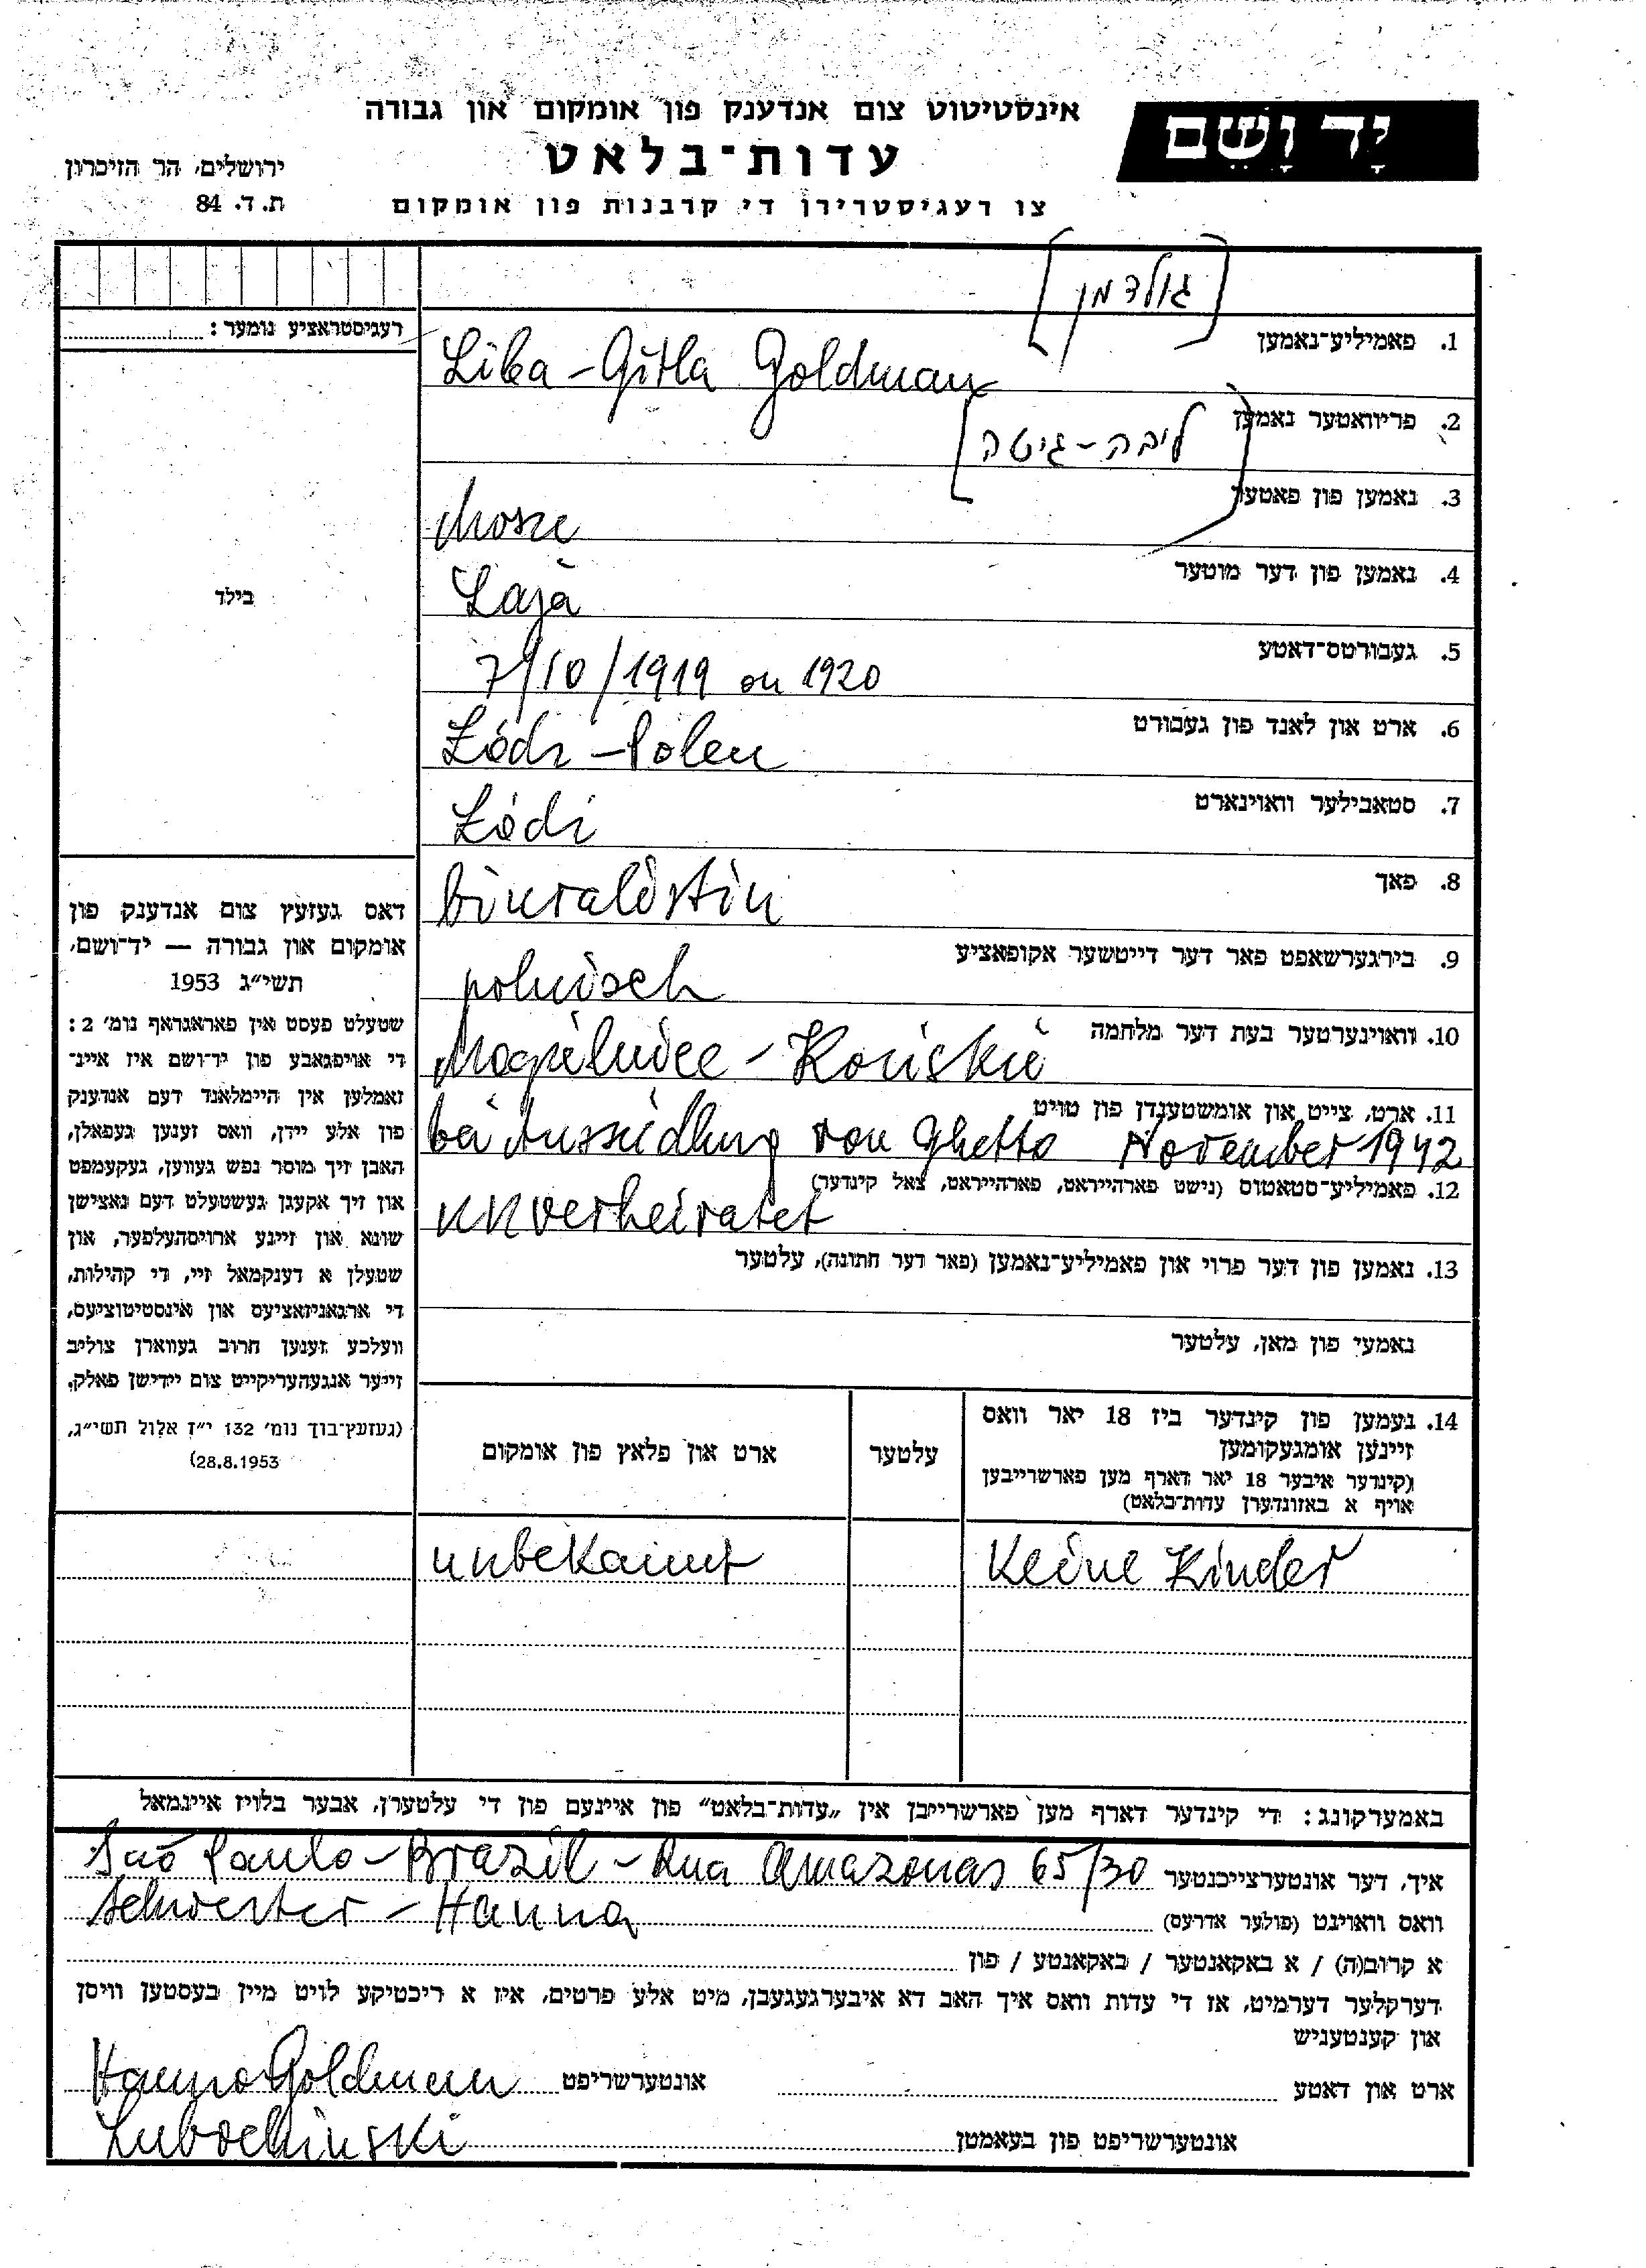 יָד וָשֵׁם
אינסטיטוט צום אנדענק פון אומקום און גבורה
עדות־בלאט
צו רעגיסטרירן די קרבנות פון אומקום
ירושלים, הר הזיכרון
ת. ד. 84
רעגיסטראציע נומער:
[גולדמן]
1. פאמיליע־נאמען
Liba - Gitla Goldman
2. פריוואטער נאמען
[ליבה - גיטה]
3. נאמען פון פאטער
Mosze
4. נאמען פון דער מוטער
Laja
5. געבורטס־דאטע
7/10/1919 ou 1920
6. ארט און לאנד פון געבורט
Łódz - Polen
7. סטאבילער וואוינארט
Łódz
8. פאך
9. בירגערשאפט פאר דער דייטשער אקופאציע
polnisch
10. וואוינערטער בעת דער מלחמה
- Końskie
11. ארט, צייט און אומשטענדן פון טויט
bei Aussiedlung von Ghetto November 1942
12. פאמיליע־סטאטוס (נישט פארהייראט, פארהייראט, צאל קינדער)
unverheiratet
13. נאמען פון דער פרוי און פאמיליע־נאמען (פאר דער חתונה), עלטער
נאמעי פון מאן, עלטער
14. נעמען פון קינדער ביז 18 יאר וואס
זיינען אומגעקומען
(קינדער איבער 18 יאר דארף מען פארשרייבען
אויף א באזונדערן עדות־בלאט)
עלטער
ארט און פלאץ פון אומקום
Keine Kinder
unbekannt
בילד
דאס געזעץ צום אנדענק פון
אומקום און גבורה — יד־ושם,
תשי״ג 1953
שטעלט פעסט אין פאראגראף נומ׳ 2:
די אויפגאבע פון יד־ושם איז איינ־
זאמלען אין היימלאנד דעם אנדענק
פון אלע יידן, וואס זענען געפאלן,
האבן זיך מוסר נפש געווען, געקעמפט
און זיך אקעגן געשטעלט דעם נאצישן
שונא און זיינע ארויסהעלפער, און
שטעלן א דענקמאל זיי, די קהילות,
די ארגאניזאציעס און אינסטיטוציעס,
וועלכע זענען חרוב געווארן צוליב
זייער אנגעהעריקייט צום יידישן פאלק.
(געזעץ־בוך נומ׳ 132 י״ז אלול תשי״ג,
28.8.1953)
באמערקונג: די קינדער דארף מען פארשרייבן אין „עדות־בלאט” פון איינעם פון די עלטערן, אבער בלויז איינמאל
איך, דער אונטערצייכנטער São Paulo - Brazil - Rua Amazonas 65/30
וואס וואוינט (פולער אדרעס) Schwester - Hanna
א קרוב(ה) / א באקאנטער / באקאנטע / פון
דערקלער דערמיט, אז די עדות וואס איך האב דא איבערגעגעבן, מיט אלע פרטים, איז א ריכטיקע לויט מיין בעסטען וויסן
און קענטעניש
ארט און דאטע
אונטערשריפט Hanna Goldman
אונטערשריפט פון בעאמטן